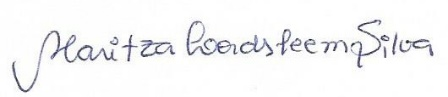 Maritza Goedsteem Silva